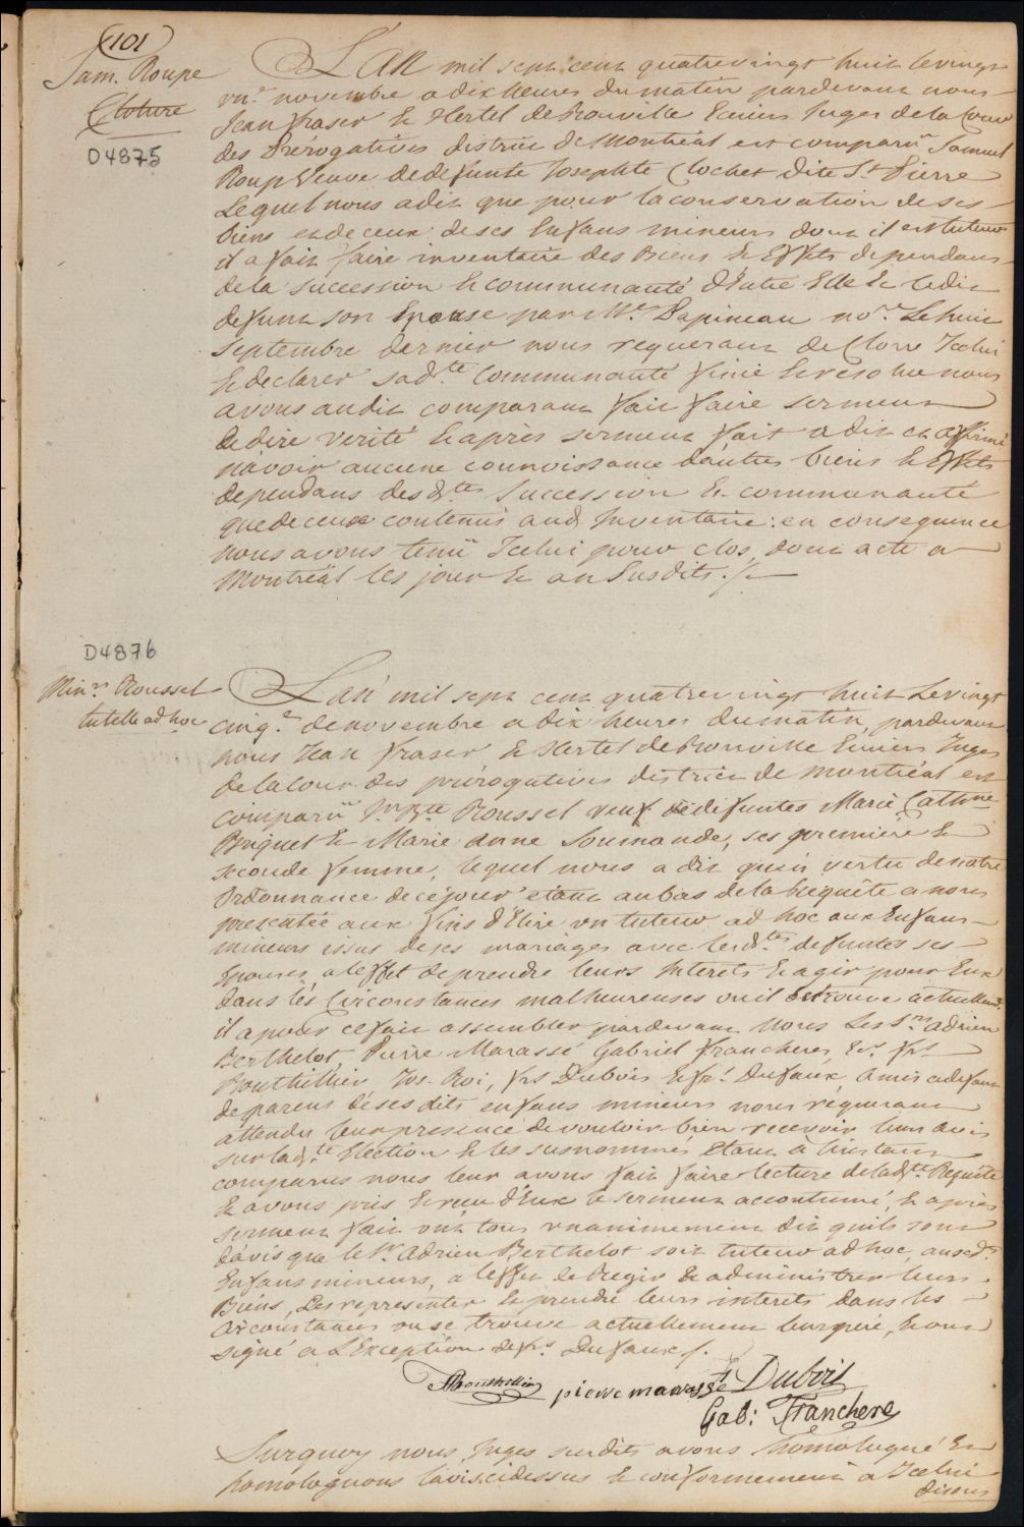 (101)
Sam. Roupe
Cloture
D4875
L'an mil sept cent quatrevingt huit le vingt
un.e novembre a dix heures du matin pardevant nous
Jean Fraser & Hertel de Rouville Ecuiers Juges de la Cour
des Prérogatives district de Montréal est comparû Samuel
Roup Veuve de defunte Josephte Clochet dite St Pierre
Lequel nous a dit que pour la conservation de ses
biens et de ceux de ses Enfans mineurs dont il est tuteur
il a fait faire inventaire des Biens & Effets dependans
de la succession & communauté d'Entre Elle & ladit
defunt son Epouse par Mr. Papineau no.re Le huit
Septembre dernier nous requerant de Clorre Icelui
& declarer sad.te Communauté finie & resolue nous
avons audit comparant fait faire serment
de dire verité & après serment fait a dit et affirmé
n'avoir aucune connoissance d'autres biens & Effets
dependans desd.tes Succession & communauté
que de ceux contenus aud Inventaire: en consequence
nous avons tenû Icelui pour clos, dont acte a
Montréal les jour & an Susdits ./.
D4876
Min.rs Roussel
tutelle ad hoc
L'an mil sept cent quatrevingt huit Le vingt
cinq.e de novembre a dix heures du matin, pardevant
nous Jean Fraser & Hertel de Rouville Ecuiers Juges
de la Cour des prérogatives district de Montréal est
comparû Jn Bte Roussel veuf de defuntes Marie Cathne
Briquet & Marie Anne Soumande, ses premiere &
seconde femme, lequel nous a dit qu'en vertu de notre
Ordonnance de ce jour etant au bas de la Requête a nous
presentée aux fins d'Elire un tuteur ad hoc aux Enfans
mineurs issus de ses mariages avec lesd.tes defuntes ses
Epouses, a l'effet de prendre leurs Interets & agir pour Eux
dans les Circonstances malheureuses ou il se trouve actuellemt.
il a pour ce fait assembler pardevant Nous Les Srs Adrien
Berthelot, Pierre Marassé Gabriel Franchere, Frs
Bouthillier, Jos. Roi, Frs Dubois & fs. Dufaux, Amis a defaut
de parens de ses dits enfans mineurs nous requerant
attendu leur presence de vouloir bien recevoir leur avis
sur lad.te Election & les susnommés Etant à l'instant
comparus nous leur avons fait faire lecture de lad.te Requête
& avons pris & reçu d'Eux le serment accoutumé, & après
serment fait ont tous unanimement dit qu'ils sont
d'avis que le Sr. Adrien Berthelot soit tuteur ad hoc, auxd.
Enfans mineurs, a l'effet de Regir & administrer leurs
Biens, Les representer & prendre leurs interets dans les
Circonstances ou se trouve actuellement leur pere, & ont
signé a L'Exception de fs. Dufaux /.
Bouthillier pierre marassé F Dubois
Gab: Franchere
Surquoy nous Juges susdits avons homologué &
homologuons l'avis cidessus & conformement a Icelui
disons